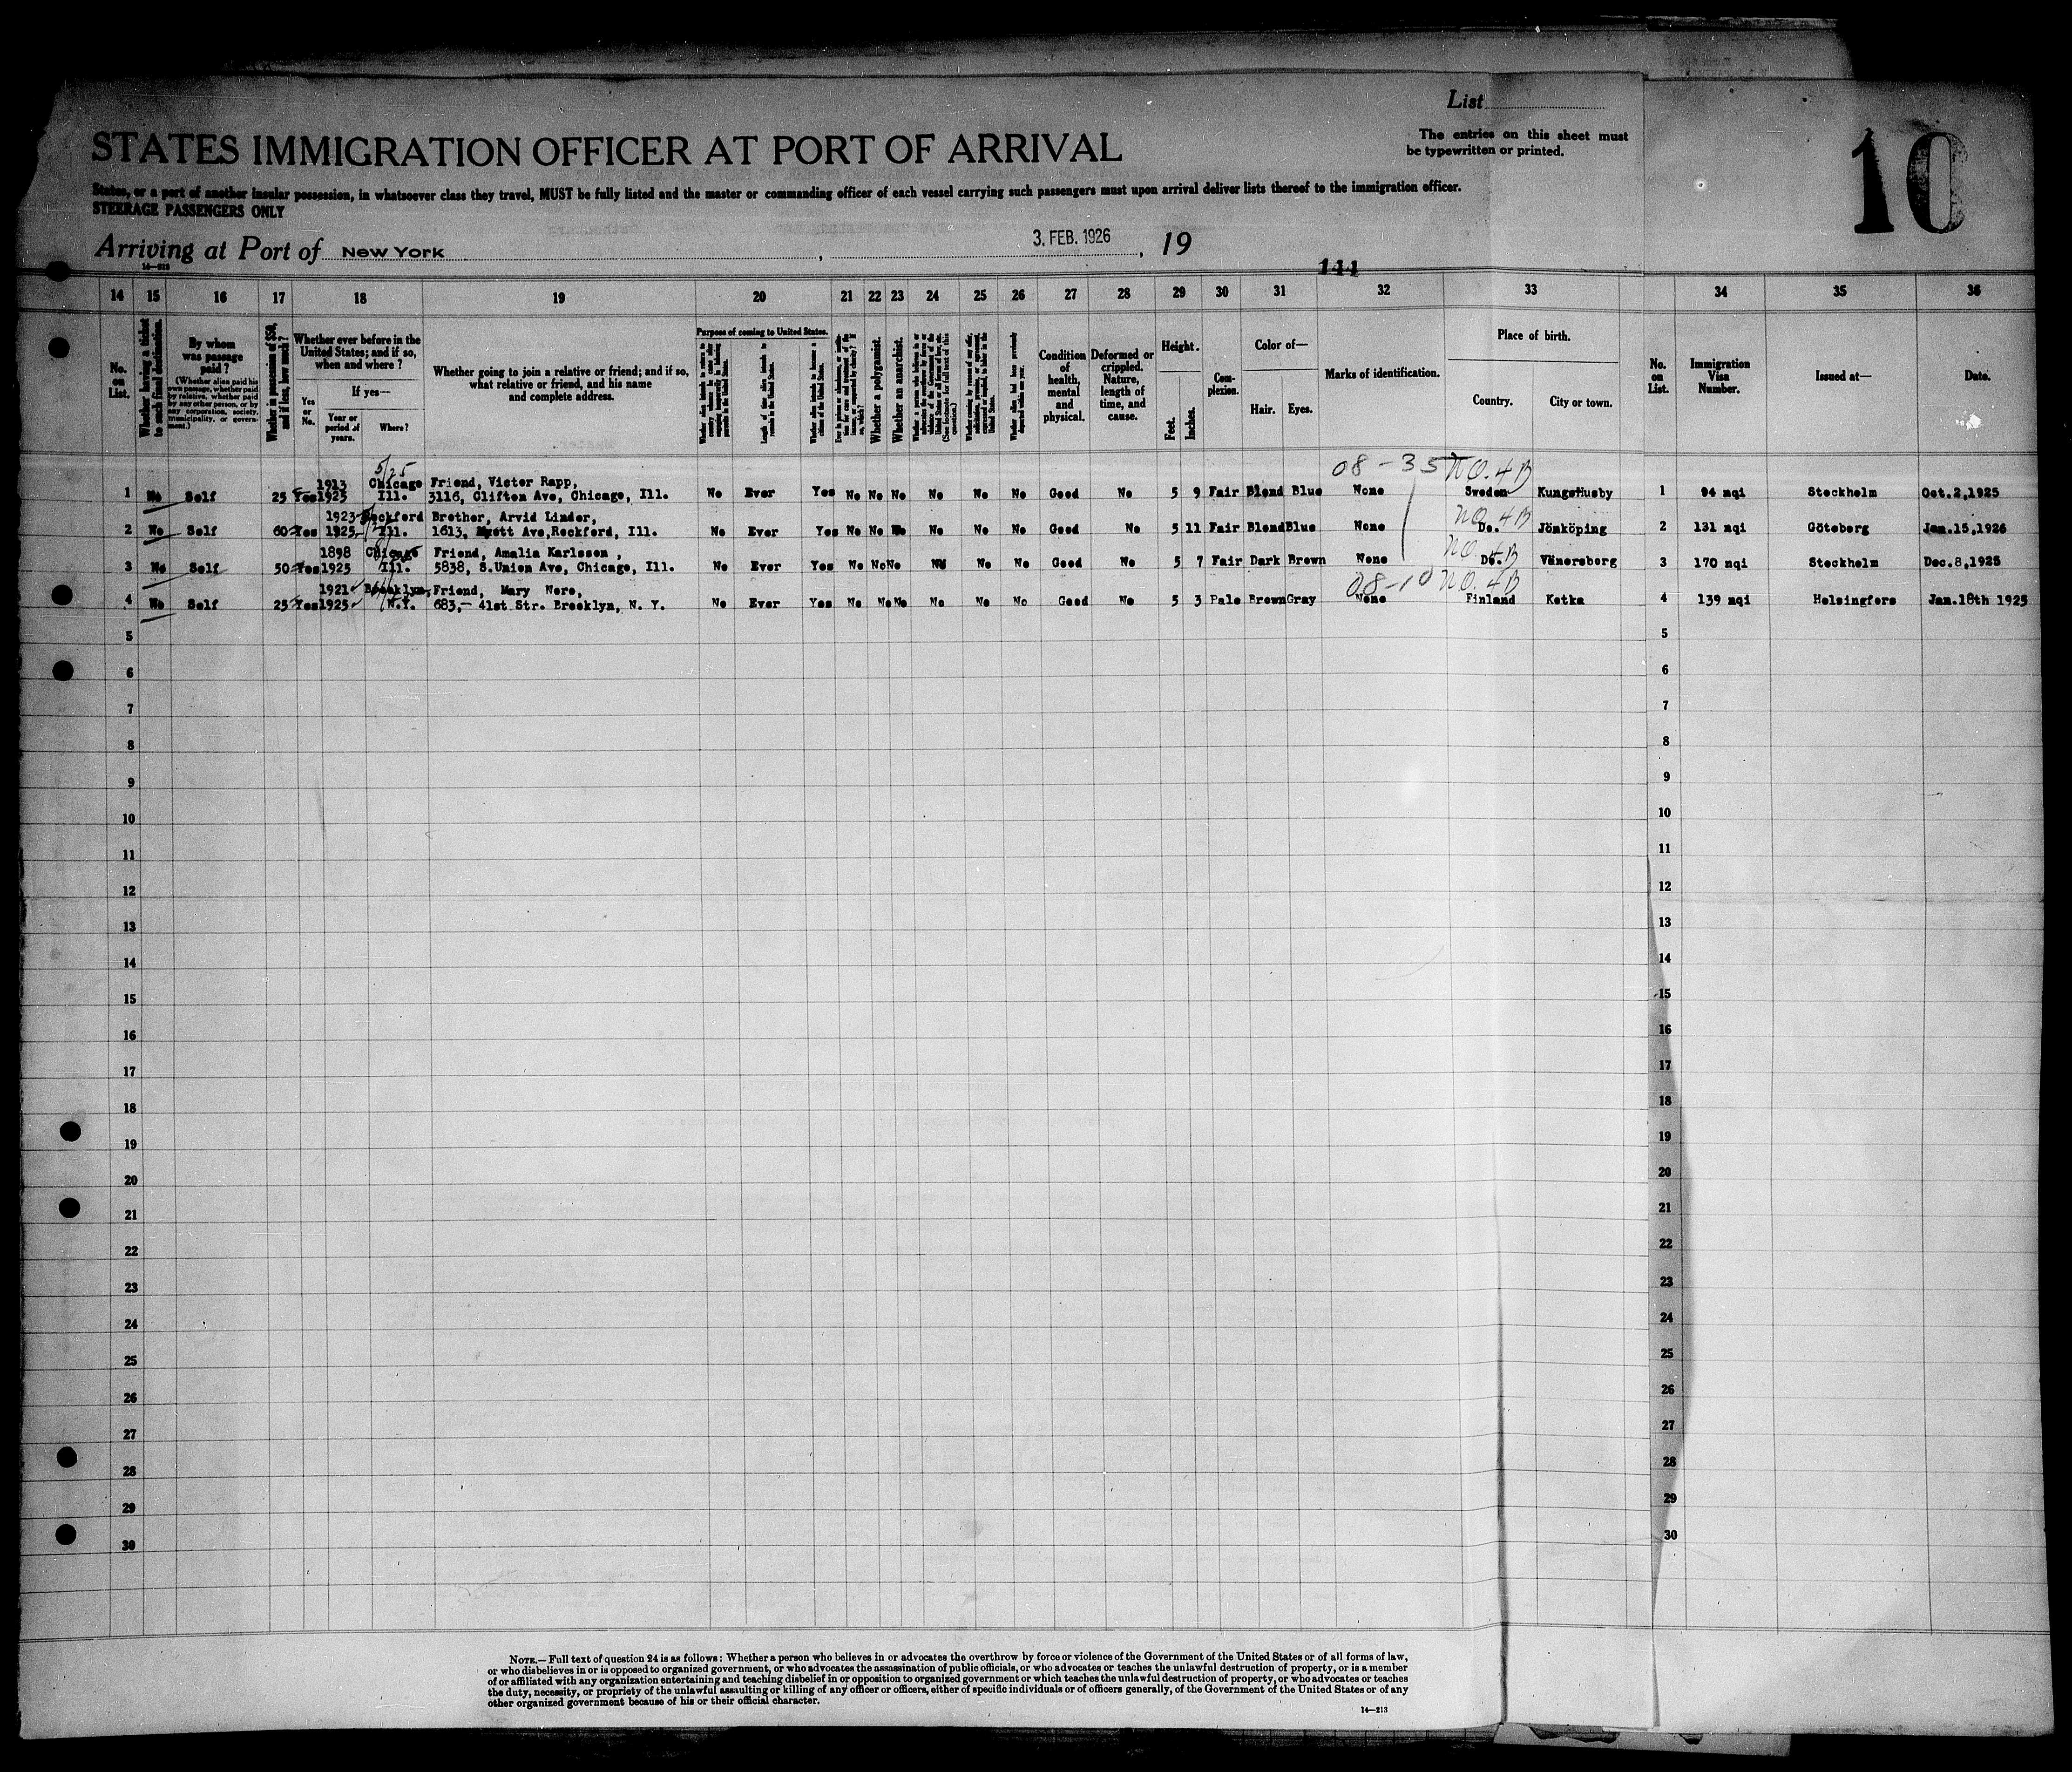 List
The entries on this sheet must
be typewritten or printed.
10
STATES IMMIGRATION OFFICER AT PORT OF ARRIVAL
States, or a port of another insular possession, in whatsoever class they travel, MUST be fully listed and the master or commanding officer of each vessel carrying such passengers must upon arrival deliver lists thereof to the immigration officer.
STEERAGE PASSENGERS ONLY
Arriving at Port of New York, 3. FEB. 1926, 19
14—213
144
14 15 16 17 18 19 20 21 22 23 24 25 26 27 28 29 30 31 32 33 34 35 36
No. on List.
Whether having a ticket to such final destination.
By whom was passage paid?
(Whether alien paid his own passage, whether paid by relative, whether paid by any other person, or by any corporation, society, municipality, or government.)
Whether in possession of $50, and if less, how much?
Whether ever before in the United States; and if so, when and where?
Yes or No.
If yes—
Year or period of years.
Where?
Whether going to join a relative or friend; and if so, what relative or friend, and his name and complete address.
Purpose of coming to United States.
Length of time alien intends to remain in the United States.
Whether alien intends to become a citizen of the United States.
Whether a polygamist.
Whether an anarchist.
Whether alien had been previously deported within one year.
Condition of health, mental and physical.
Deformed or crippled. Nature, length of time, and cause.
Height.
Feet.
Inches.
Complexion.
Color of—
Hair.
Eyes.
Marks of identification.
Place of birth.
Country.
City or town.
No. on List.
Immigration Visa Number.
Issued at—
Date.
5/25 08-35 NO.4B
1913 Chicago Friend, Victor Rapp,
1 No Self 25 Yes 1925 Ill. 3116, Clifton Ave, Chicago, Ill. No Ever Yes No No No No No No Good No 5 9 Fair Blond Blue None Sweden Kungshusby 1 94 nqi Stockholm Oct.2,1925
1923 Rockford Brother, Arvid Linder, NO.4B
2 No Self 60 Yes 1925 Ill. 1613, Ave, Rockford, Ill. No Ever Yes No No No No No No Good No 5 11 Fair Blond Blue None Do. Jönköping 2 131 nqi Göteborg Jan.15,1926
1898 Chicago Friend, Amalia Karlsson, NO.4B
3 No Self 50 Yes 1925 Ill. 5838, S.Union Ave, Chicago, Ill. No Ever Yes No No No No No No Good No 5 7 Fair Dark Brown None Do. Vänersborg 3 170 nqi Stockholm Dec.8,1925
1921 Brooklyn, Friend, Mary Nore, 08-10 NO.4B
4 No Self 25 Yes 1925 N.Y. 683,- 41st Str. Brooklyn, N. Y. No Ever Yes No No No No No No Good No 5 3 Pale Brown Gray None Finland Kotka 4 139 nqi Helsingfors Jan.18th 1925
5 5
6 6
7 7
8 8
9 9
10 10
11 11
12 12
13 13
14 14
15 15
16 16
17 17
18 18
19 19
20 20
21 21
22 22
23 23
24 24
25 25
26 26
27 27
28 28
29 29
30 30
NOTE.—Full text of question 24 is as follows: Whether a person who believes in or advocates the overthrow by force or violence of the Government of the United States or of all forms of law,
or who disbelieves in or is opposed to organized government, or who advocates the assassination of public officials, or who advocates or teaches the unlawful destruction of property, or is a member
of or affiliated with any organization entertaining and teaching disbelief in or opposition to organized government or which teaches the unlawful destruction of property, or who advocates or teaches
the duty, necessity, or propriety of the unlawful assaulting or killing of any officer or officers, either of specific individuals or of officers generally, of the Government of the United States or of any
other organized government because of his or their official character.
14—213